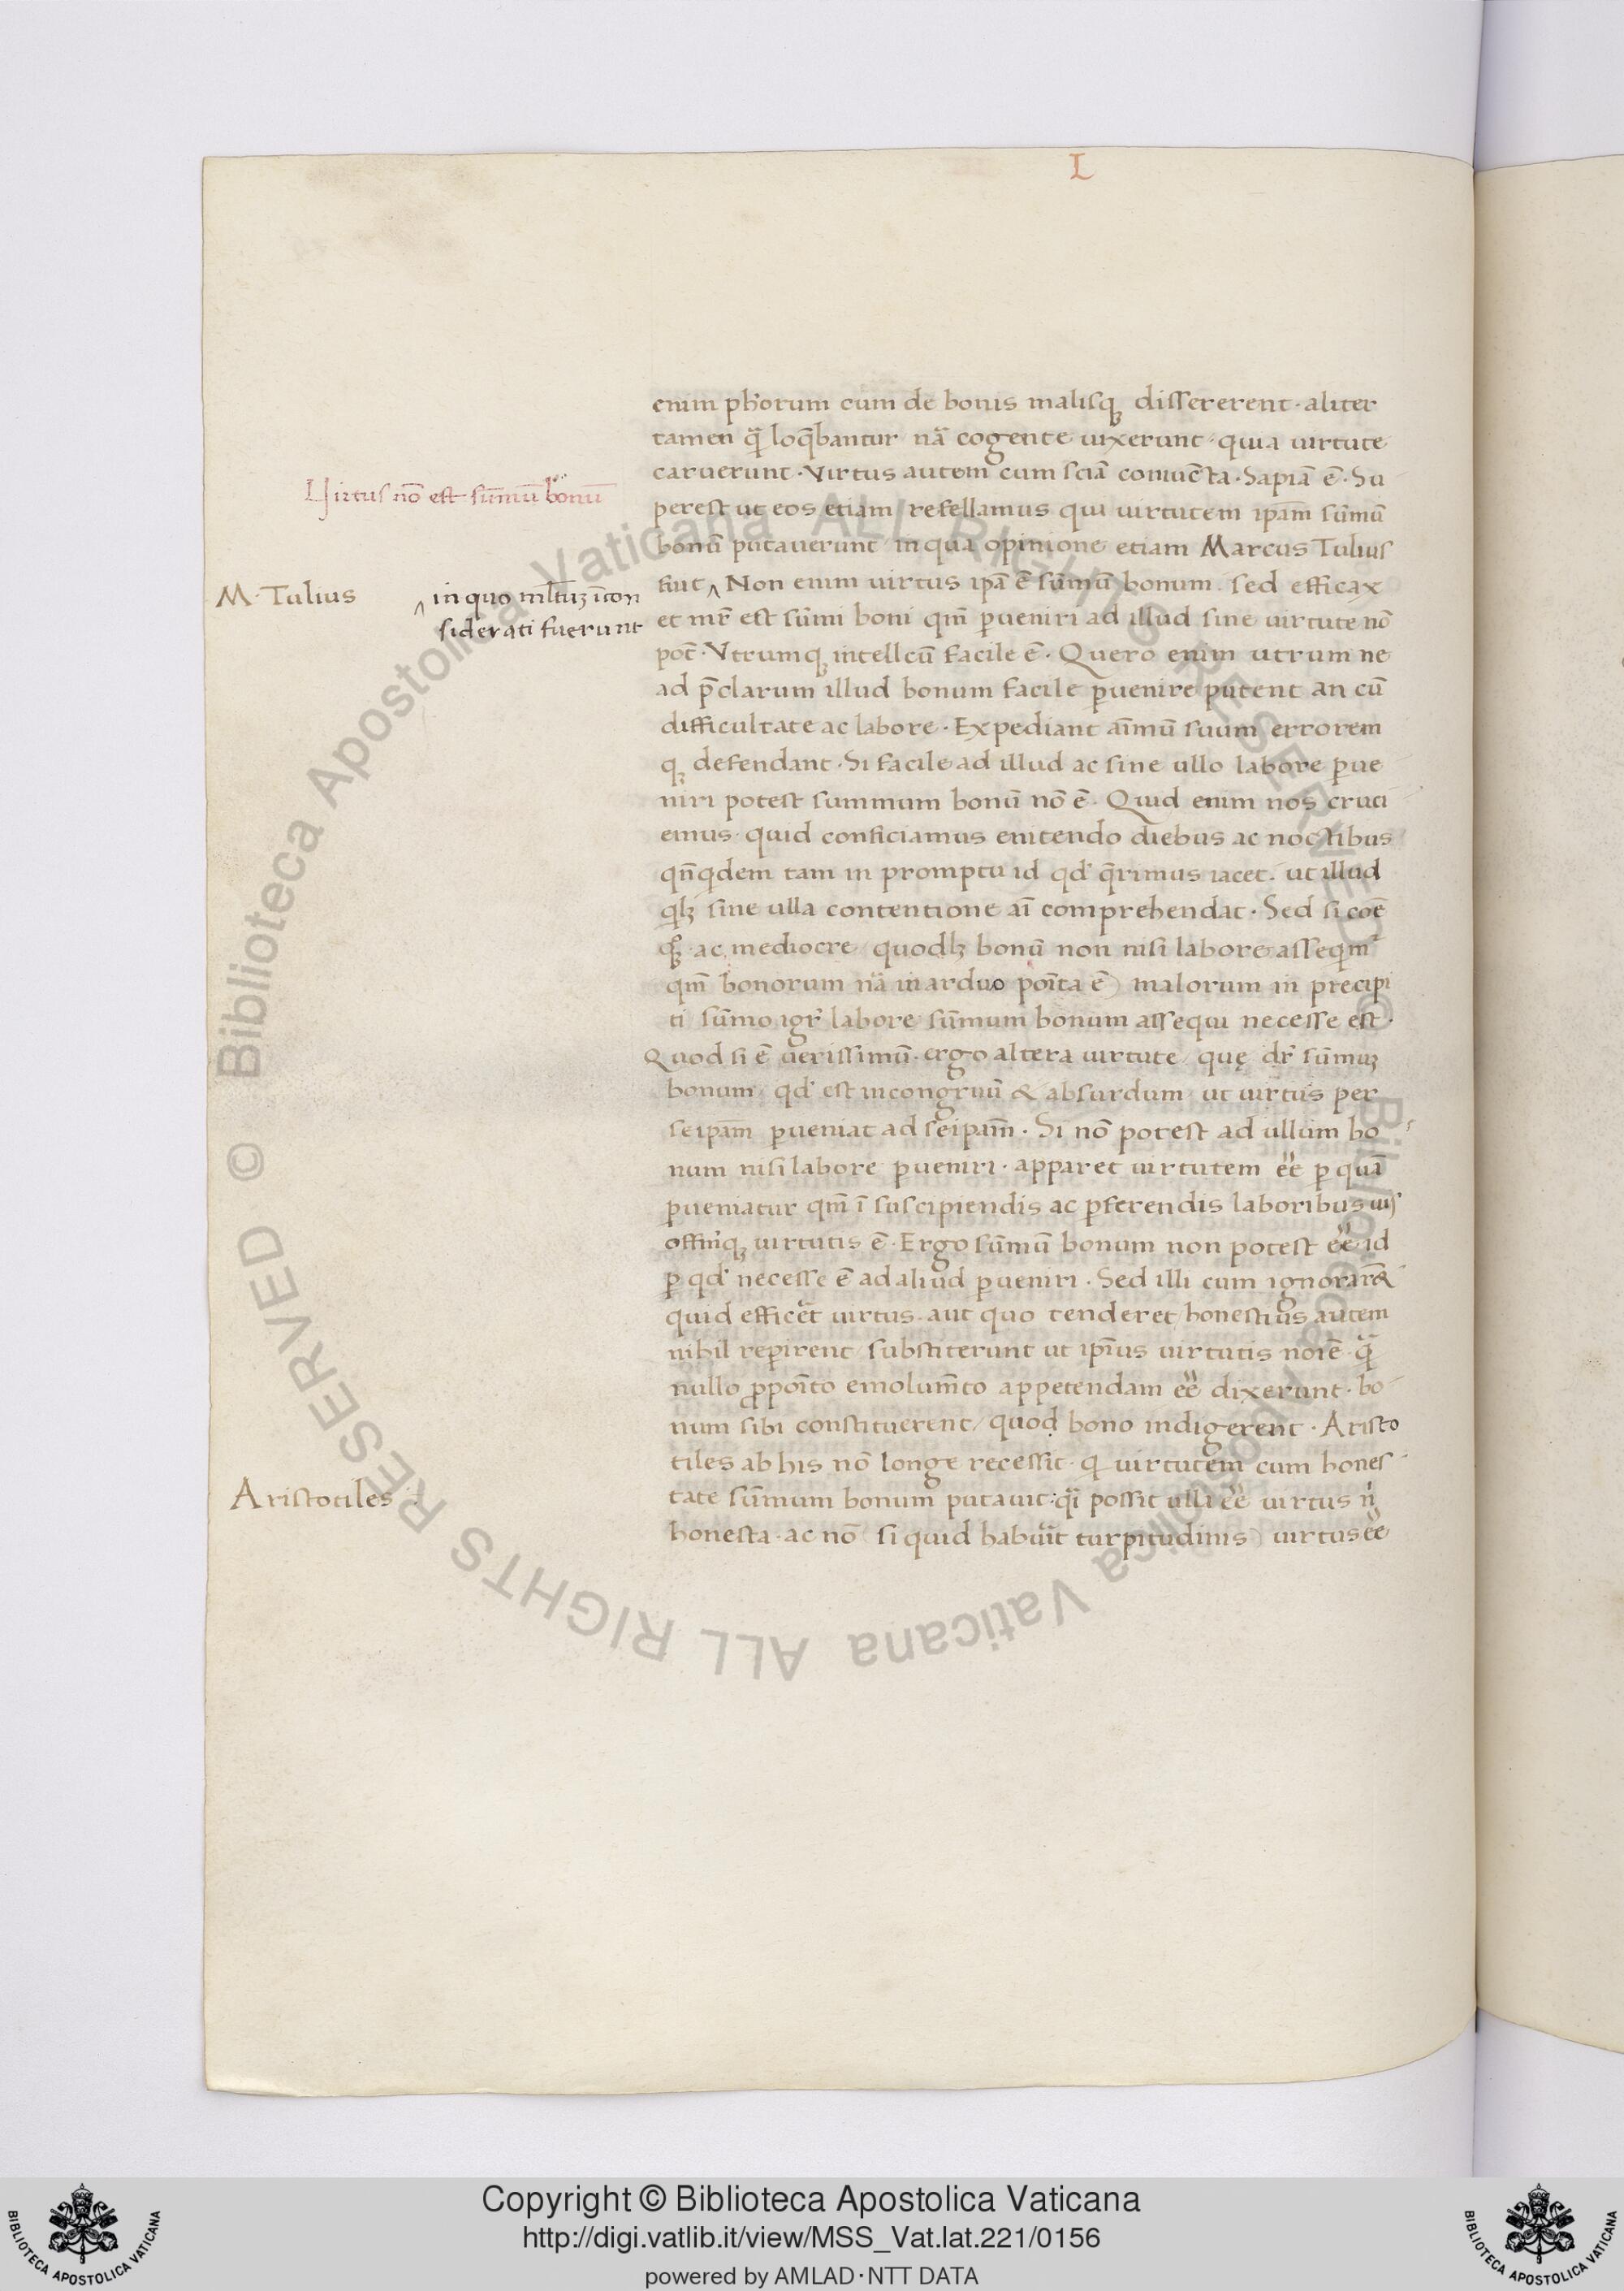 L
enim ph'orum cum de bonis malisqꝫ dissererent · aliter
tamen q̄ loq̄bantur nā cogente uixerunt · quia uirtute
caruerunt · Virtus autem cum sciā coniuēta · Sapiā ē · Su
Virtus nō est sūmū bonū
perest ut eos etiam refellamus qui uirtutem ip̄am sūmū
bonū putauerunt in qua opinione etiam Marcus Tulius
M · Tulius
fuit ‸ Non enim uirtus ipā ē sūmū bonum · sed efficax
‸ in quo ml̄tuꝫ īcon
siderati fuerunt
et mr̄ est sūmi boni qm̄ ꝑueniri ad illud sine uirtute nō
pot̄ · Vtrumqꝫ intellcū facile ē · Quero enim utrum ne
ad p̄clarum illud bonum facile ꝑuenire putent an cū
difficultate ac labore · Expediant aīmū suum errorem
qꝫ defendant · Si facile ad illud ac sine ullo labore ꝑue
niri potest summum bonū nō ē · Quid enim nos cruci
emus · quid conficiamus enitendo diebus ac noctibus
qn̄qdem tam in promptu id qd' q̄rimus iacet · ut illud
qlꝫ sine ulla contentione aī comprehendat · Sed si coē
qꝫ · ac mediocre quodlꝫ bonū non nisi labore asseqim̄
qm̄ bonorum nā in arduo poīta ē) malorum in precipi
ti sūmo igr̄ labore sūmum bonum assequi necesse est ·
Quod si ē uerissimū · ergo altera uirtute / quę dr̄ sūmuꝫ
bonum / qd' est incongruū & absurdum ut uirtus per
seipam ꝑueniat ad seipam̄ · Si nō potest ad ullum bo
num nisi labore ꝑueniri · apparet uirtutem ēē ꝑ quā
ꝑueniatur qm̄ ī suscipiendis ac ꝑferendis laboribus uis
offm̄qꝫ uirtutis ē · Ergo sūmū bonum non potest ēē id
ꝑ qd' necesse ē ad aliud ꝑueniri · Sed illi cum ignorar̄&
quid efficet̄ uirtus aut quo tenderet / honestius autem
nihil reꝑirent / substiterunt ut ip̄ius uirtutis noīe · q̄
nullo ꝓpoīto emolum̄to appetendam ēē dixerunt · bo
num sibi constituerent / quod bono indigerent · Aristo
tiles ab his nō longe recessit · q uirtutem cum hones
Aristotiles
tate sūmum bonum putauit : qī possit ulla ēē uirtus n
honesta · ac nō (si quid habūit turpitudinis) uirtus ēē
© Biblioteca Apostolica Vaticana ALL RIGHTS RESERVED
© Biblioteca Apostolica Vaticana ALL RIGHTS RESERVED
Copyright © Biblioteca Apostolica Vaticana
http://digi.vatlib.it/view/MSS_Vat.lat.221/0156
powered by AMLAD · NTT DATA
BIBLIOTECA APOSTOLICA VATICANA
BIBLIOTECA APOSTOLICA VATICANA